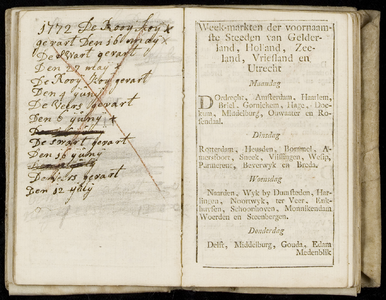 1772 De Rooy koy x
gevart Den 16 mdy x
De Swart gevart
Den 20 mey
De Rooy koy gevart
Den 4 juny
De Veers gevart
Den 6 juny x
De Swart gevart
Den 16 juny
De Veers gevart
Den 12 july
Week-markten der voornaam-
ste Steeden van Gelder-
land, Holland, Zee-
land, Vriesland en
Utrecht
Maandag
Dordrecht, Amsterdam, Haarlem,
Briel, Gornichem, Hage, Doc-
kum, Middelburg, Ouwater en Ro-
sendaal.
Dinsdag
Rotterdam, Heusden, Bommel, A-
mersfoort, Sneek, Vlissingen, Weesp,
Purmerent, Beverwyk en Breda.
Woensdag
Naarden, Wyk by Duursteden, Har-
lingen, Noortwyk, ter Veer, Enk-
huysen, Schoonhoven, Monnikendam
Woerden en Steenbergen.
Donderdag
Delft, Middelburg, Gouda, Edam
Medenblik